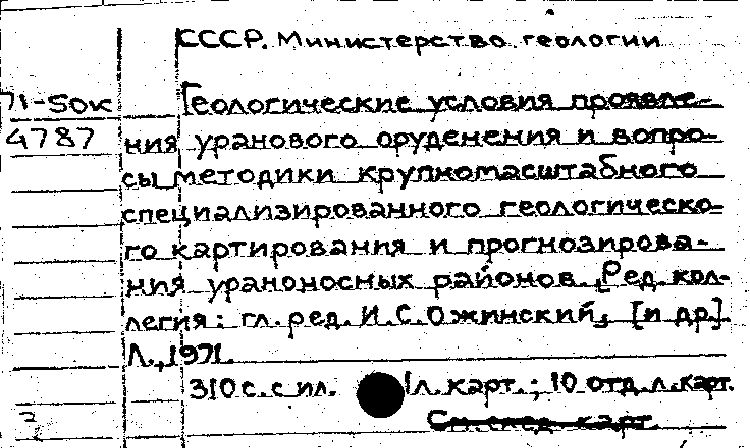 СССР. Министерство геологии
71-50к
Геологические условия проявле-
4787
ния уранового оруденения и вопро-
сы методики крупномасштабного
специализированного геологическо-
го картирования и прогнозирова-
ния ураноносных районов. Ред. кол-
легия: гл. ред. И.С. Ожинский, [и др.]
Л., 1971.
310 с. с ил. 1 л. карт.; 10 отд. л. карт.
См. след. карт.
2